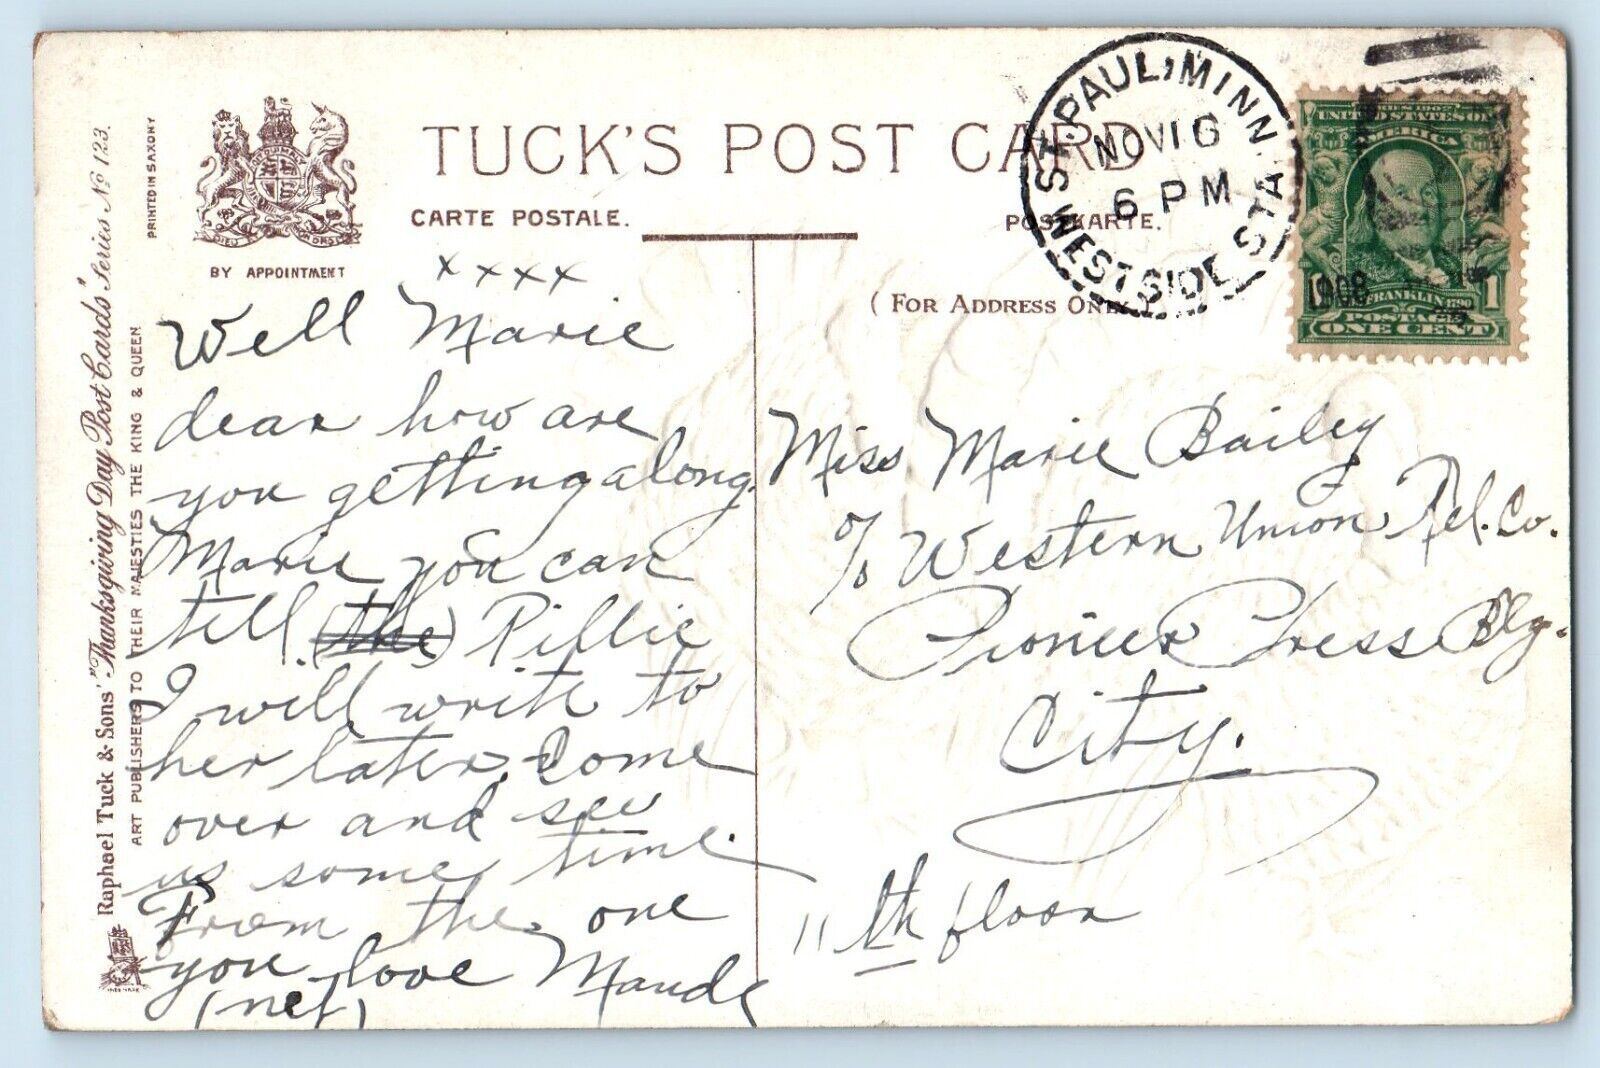 TUCK'S POST CARD
CARTE POSTALE.
POSTKARTE.
BY APPOINTMENT
(FOR ADDRESS ONLY.)
PRINTED IN SAXONY
Raphael Tuck & Sons' "Thanksgiving Day Post Cards" Series No 123.
ART PUBLISHERS TO THEIR MAJESTIES THE KING & QUEEN
ST. PAUL, MINN.
NOV 16
6 PM
WEST SIDE STA.
1908
SERIES 1902
UNITED STATES OF
AMERICA
FRANKLIN 1790
1
POSTAGE
ONE CENT
x x x x
Well Marie
dear how are
you getting along.
Marie you can
tell (the) Pillie
I will write to
her later. Come
over and see
us some time.
From the one
you love Maude
(net)
Miss Marie Bailey
c/o Western Union Tel. Co.
Pioneer Press Blg.
City.
11th floor